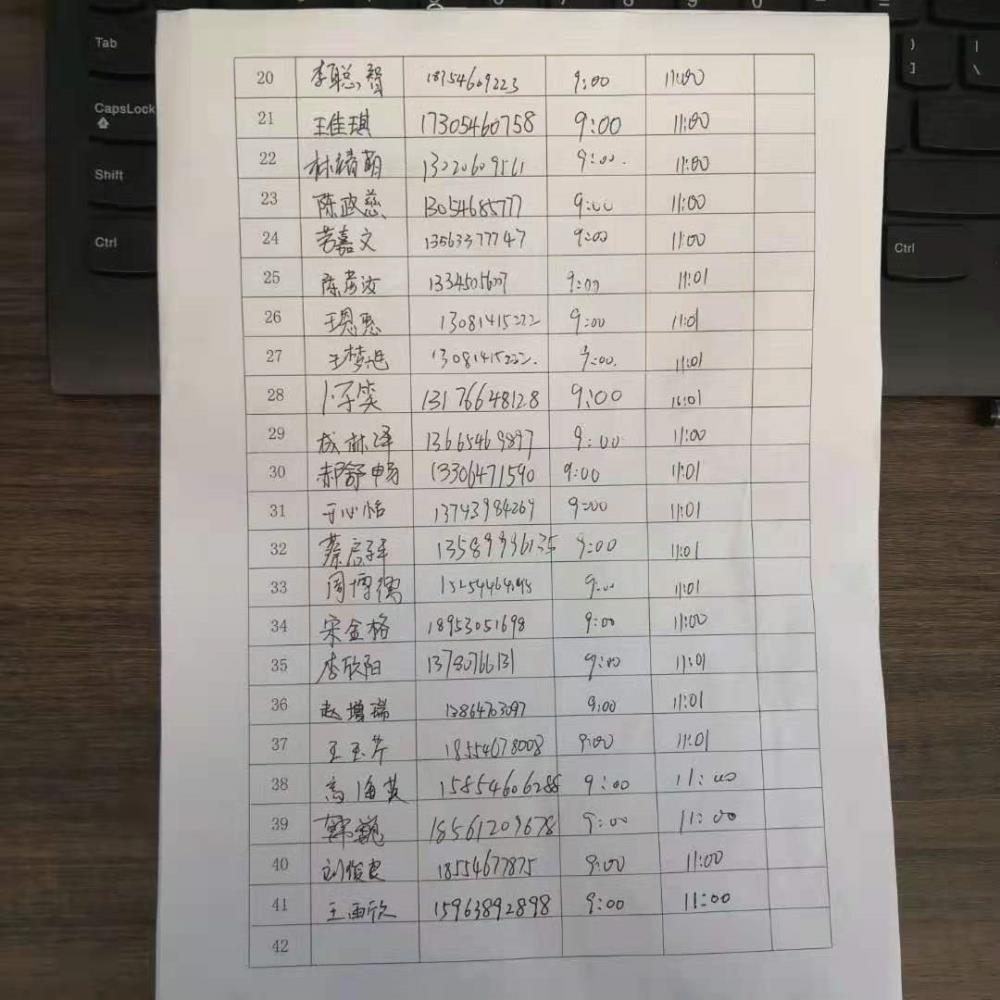 Tab
CapsLock
Shift
Ctrl
Ctrl
20 李聪智 18754609223 9:00 11:00
21 王佳琪 17305460758 9:00 11:00
22 林绪萌 13220609561 9:00. 11:00
23 陈政慈 13054685777 9:00 11:00
24 苏嘉文 13563377747 9:00 11:00
25 陈彦汝 9:00 11:01
26 王恩惠 13081415222 9:00 11:01
27 王梦旭 13081415222. 9:00. 11:01
28 卜子奕 13176648128 9:00 11:01
29 成林泽 13665469897 9:00 11:00
30 郝舒畅 13306471590 9:00 11:01
31 于心怡 13743984269 9:00 11:01
32 蔡启 13589996135 9:00 11:01
33 周博儒 9:00 11:01
34 宋金格 18953051698 9:00 11:00
35 李欣阳 9:00 11:01
36 赵增瑞 9:00 11:01
37 王玉芹 18554678008 9:00 11:01
38 高海英 15854606288 9:00 11:00
39 韩巍 18561209678 9:00 11:00
40 刘俊良 18554677875 9:00 11:00
41 王雨欣 15963892898 9:00 11:00
42